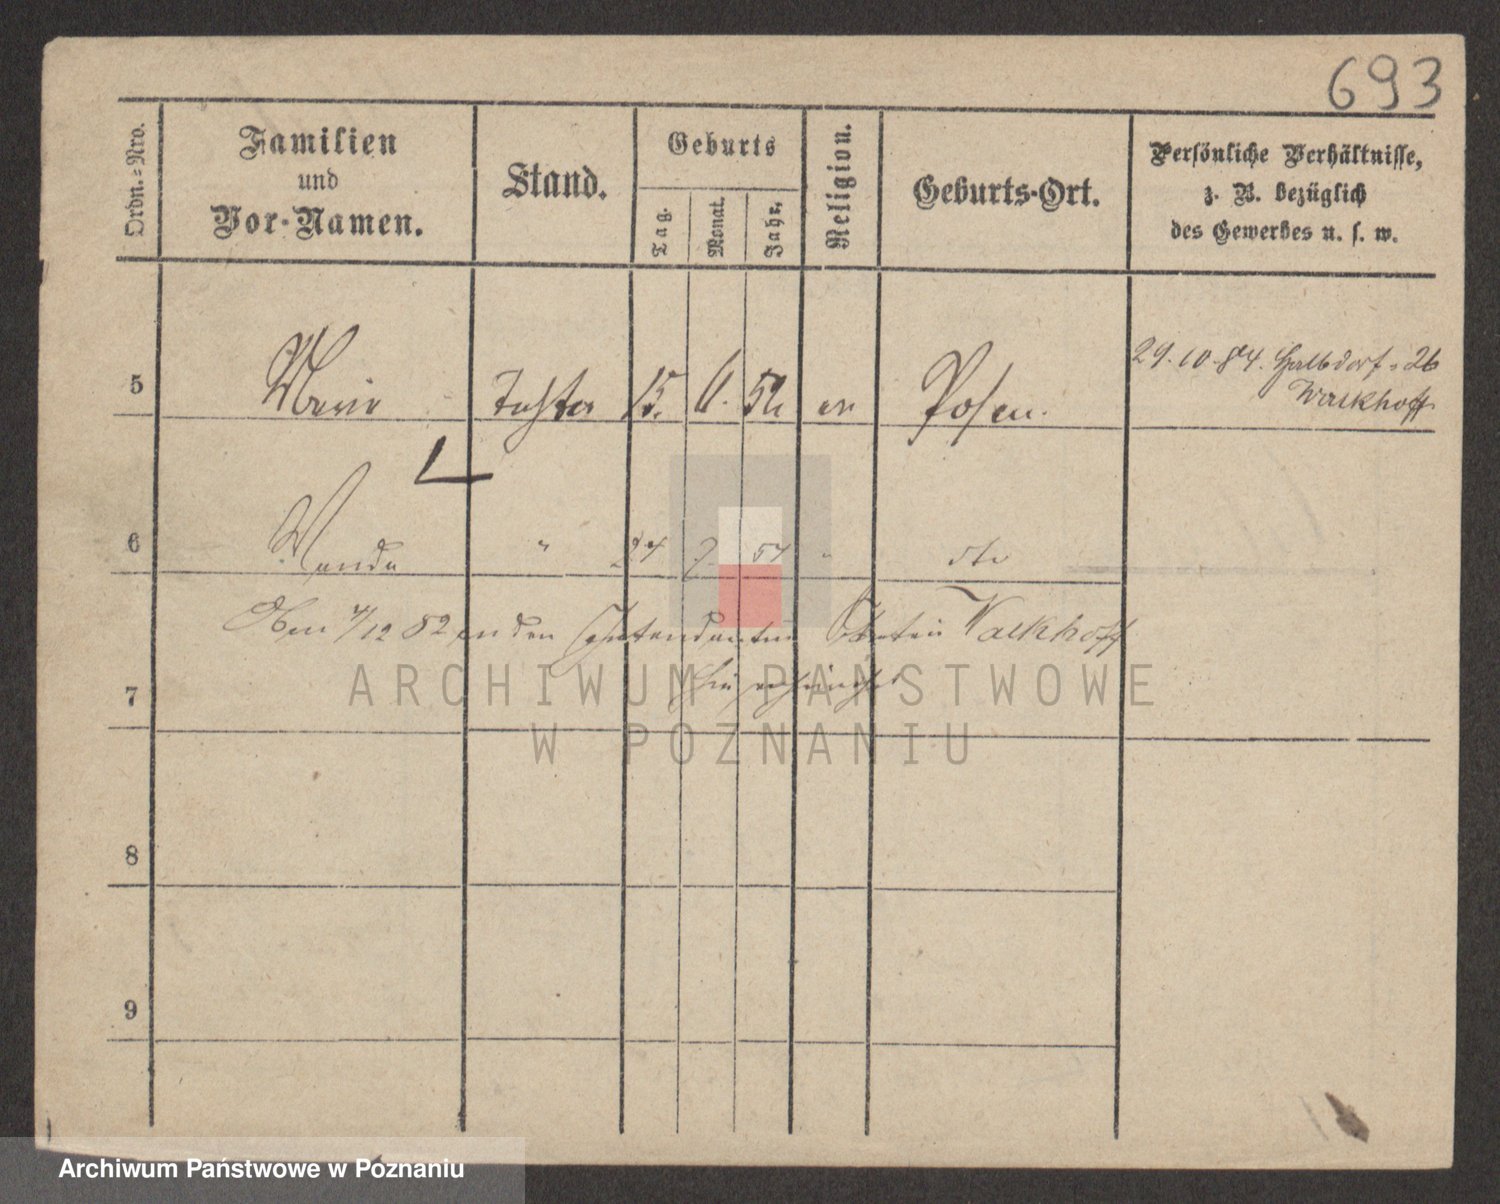 693
Ordn.-Nro.
Familien
und
Vor-Namen.
Stand.
Geburts
Tag.
Monat.
Jahr.
Religion.
Geburts-Ort.
Persönliche Verhältnisse,
z. B. bezüglich
des Gewerbes u. s. w.
5 Marie Tochter 15. 6. ev Posen. 29.10.84. Halbdorf. 26
Walkhoff
6 Wanda " 24 " dto
4/12 82 an den Intendanten Walkhoff
7
8
9
ARCHIWUM PAŃSTWOWE
W POZNANIU
Archiwum Państwowe w Poznaniu